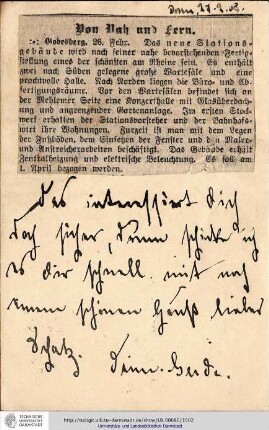 Bonn 27.2.08.
Von Nah und Fern.
:-: Godesberg, 26. Febr. Das neue Stations-
gebäude wird nach seiner nahe bevorstehenden Fertig-
stellung eines der schönsten am Rheine sein. Es enthält
zwei nach Süden gelegene große Wartesäle und eine
prachtvolle Halle. Nach Norden liegen die Büro- und Ab-
fertigungsräume. Vor den Wartesälen befindet sich an
der Mehlemer Seite eine Konzerthalle mit Glasüberdach-
ung und angrenzender Gartenanlage. Im ersten Stock-
werk erhalten der Stationsvorsteher und der Bahnhofs-
wirt ihre Wohnungen. Zurzeit ist man mit dem Legen
der Fußböden, dem Einsetzen der Fenster und den Maler-
und Anstreicherarbeiten beschäftigt. Das Gebäude erhält
Zentralheizung und elektrische Beleuchtung. Es soll am
1. April bezogen werden.
Das interessiert Dich
doch sicher, drum schicke ich
es dir schnell mit noch
einem schönen Gruß lieber
Schatz. Deine
TECHNISCHE
UNIVERSITÄT
DARMSTADT
Universitäts- und Landesbibliothek Darmstadt